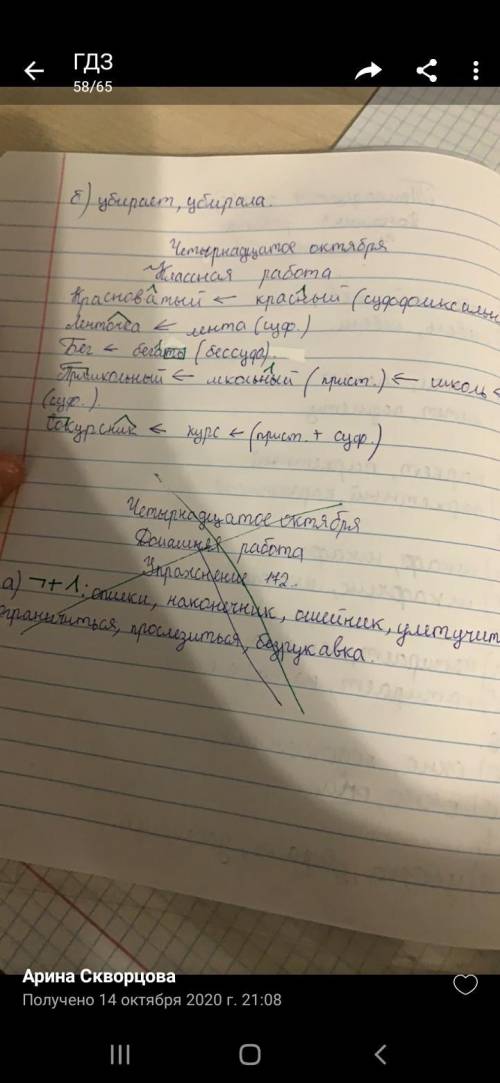 ГДЗ
58/65
б) убирает, убирала.
Четырнадцатое октября
Классная работа
Красноватый ← красный (суффиксальн
Ленточка ← лента (суф.)
Бег ← бегать (бессуф).
Пришкольный ← школьный (прист.) ← школь
(суф.).
Сокурсник ← курс ← (прист. + суф.)
Четырнадцатое октября
Домашняя работа
Упражнение 172.
а) ¬+^: опилки, наконечник, ошейник, улетучит
ограничиться, прослезиться, безрукавка.
Арина Скворцова
Получено 14 октября 2020 г. 21:08